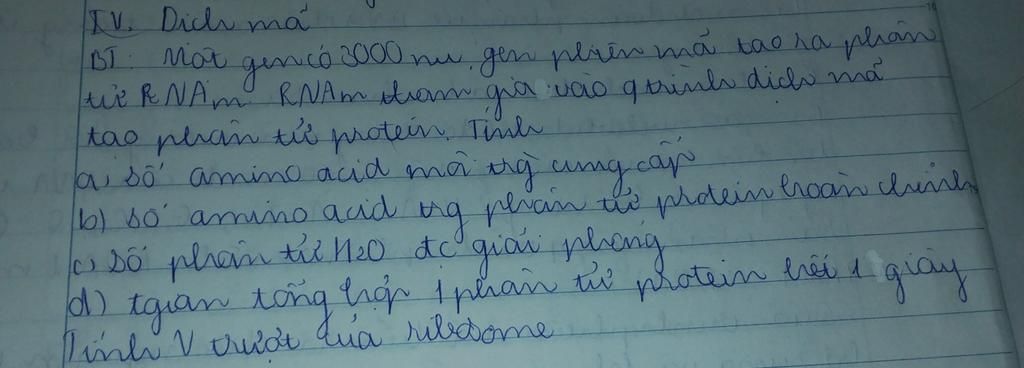 IV. Dịch mã
BT: Một gen có 3000 nu, gen phiên mã tạo ra phân
tử RNAm RNAm tham gia vào q trình dịch mã
tạo phân tử protein. Tính
a, số amino acid mà trg cung cấp
b) số amino acid trg phân tử protein hoàn chỉnh
c, số phân tử H2O đc giải phóng
d) tgian tổng hợp 1 phân tử protein hết 1 giây
Tính V trượt của ribosome